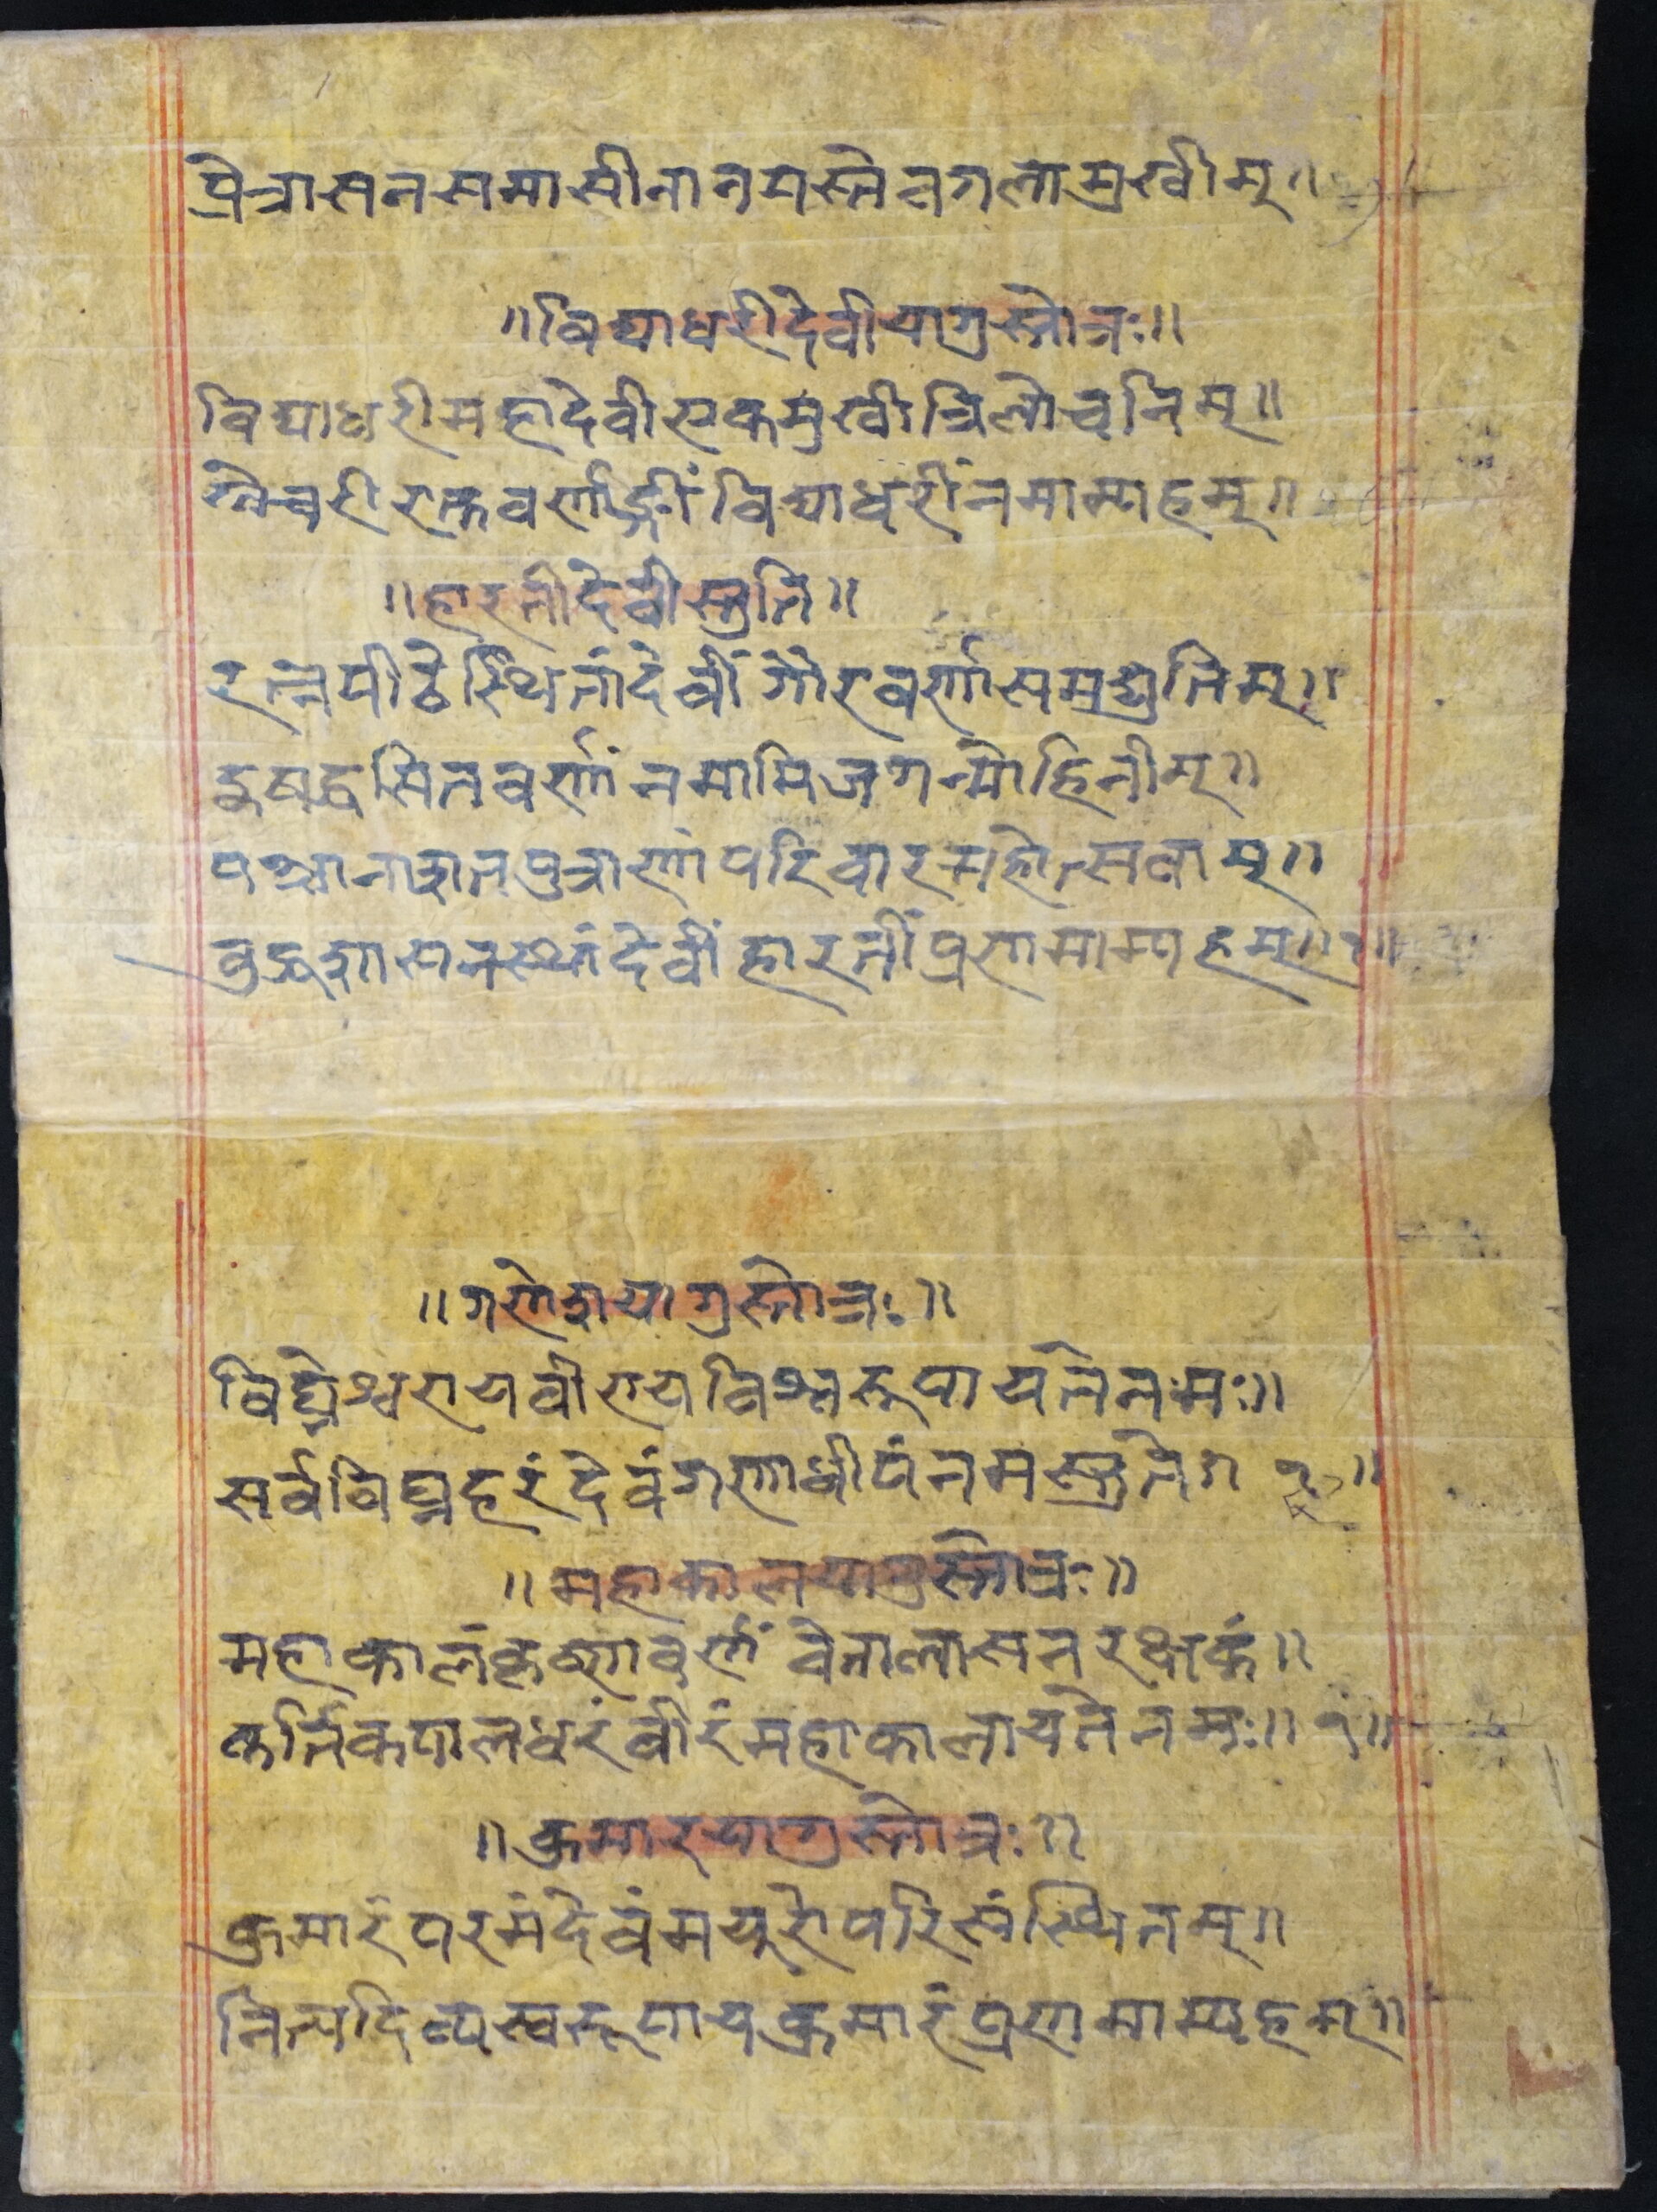 प्रेत्रासनसमासीनानमस्तेवगलामुखीम्॥
॥विद्याधरीदेवीयागुस्तोत्रः॥
विद्याधरीमहादेवीएकमुखीत्रिलोचनिम्॥
खेचरीरक्तवर्णाङ्गीं विद्याधरींनमाम्यहम्॥
॥हारतीदेवीस्तुति॥
रत्नपीठेस्थितांदेवीं गौरवर्णासमद्युतिम्॥
नमामिजगन्मोहिनीम्॥
पञ्चानाशतपुत्राणांपरिवारमहोत्सवाम्॥
बुद्धशासनस्थांदेवीं हारतींप्रणमाम्यहम्॥१॥
॥गणेशयागुस्तोत्रः॥
विघ्नेश्वरायवीरायविश्वरूपायतेनमः॥
सर्वविघ्नहरंदेवंगणाधीपंनमस्तुते॥१॥
॥महाकालयागुस्तोत्रः॥
महाकालंकृष्णवर्णं वेतालासनरक्षकं॥
कर्तिकपालधरंवीरंमहाकालायतेनमः॥१॥
॥कुमारयागुस्तोत्रः॥
कुमारंपरमंदेवंमयुरोपरिसंस्थितम्॥
नित्यदिव्यस्वरूपायकुमारंप्रणमाम्यहम्॥